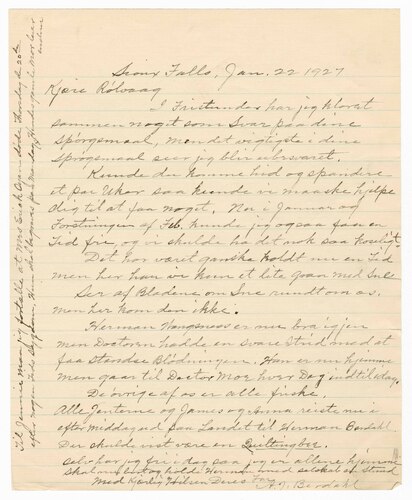 Sioux Falls, Jan. 22 1927
Kjære Rölvaag
I Fristunder har jeg kloret
sammen noget som Svar paa dine
Spörgsmaal, men det vigtigste i dine
Spørgsmaal seer jeg blir ubesvaret.
Kunde du komme hid og spandere
et par Uker saa kunde vi maaske hjelpe
dig til at faa noget. Nu i Januar og
Forstningen af Feb. kunde jeg ogsaa faa en
Tid fri, og vi skulde ha det nok saa koseligt.
Det har været ganske koldt nu en Tid
men her han vi kun et lite gran med Sne
Ser af Bladene om Sne rundt om os,
men her kom den ikke.
Herman er nu bra igjen
men Doctoren hadde en svare Strid med at
faa Standse Blödningen. Han er nu hjemme
men gaar til Doctor Moe hver Dag indtil idag.
De övrige af os er alle friske.
Alle Jenterne og James og Anna reiste nu i
eftermiddag ud paa Landet til Herman Berdahl.
Der skulde nst være en Quiltingbee.
selv har jeg fri i dag saa jeg er allene hjemme
Skal nu holde Herman med selskab en Stund
Med Kjerlig Hilsen Deres Far
A. J. Berdahl
Til Jennie maa jeg fortælle at Mrs döde Thorsdag d. 20de
efter nogen Tids Sygdom. Hun skal begraves paa Mandag.